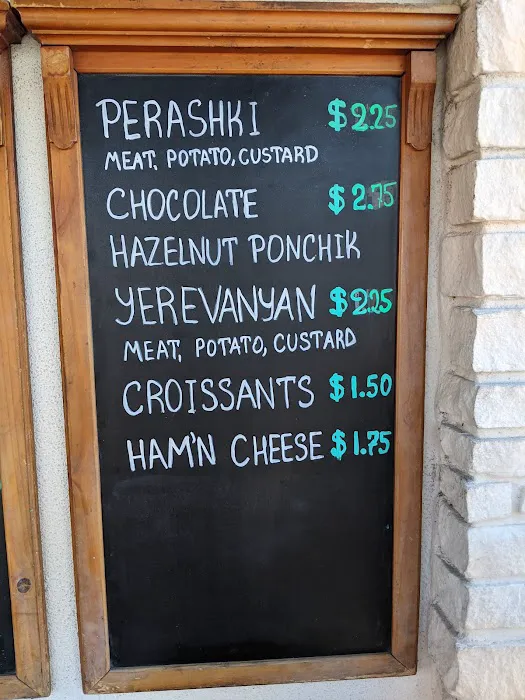 PERASHKI $2.25
MEAT, POTATO, CUSTARD
CHOCOLATE $2.75
HAZELNUT PONCHIK
YEREVANYAN $2.25
MEAT, POTATO, CUSTARD
CROISSANTS $1.50
HAM'N CHEESE $1.75